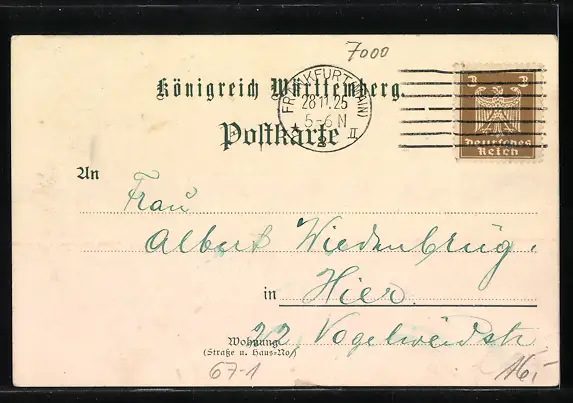 7000
Königreich Württemberg.
FRANKFURT (MAIN)
28.11.25
5-6 N
* 2 II
Postkarte
3 3
Deutsches
Reich
An
Frau
Albert Wiedenbrüg.
in Hier.
Wohnung
(Straße u. Haus-No)
22 Vogelweidstr
67-1
16,-